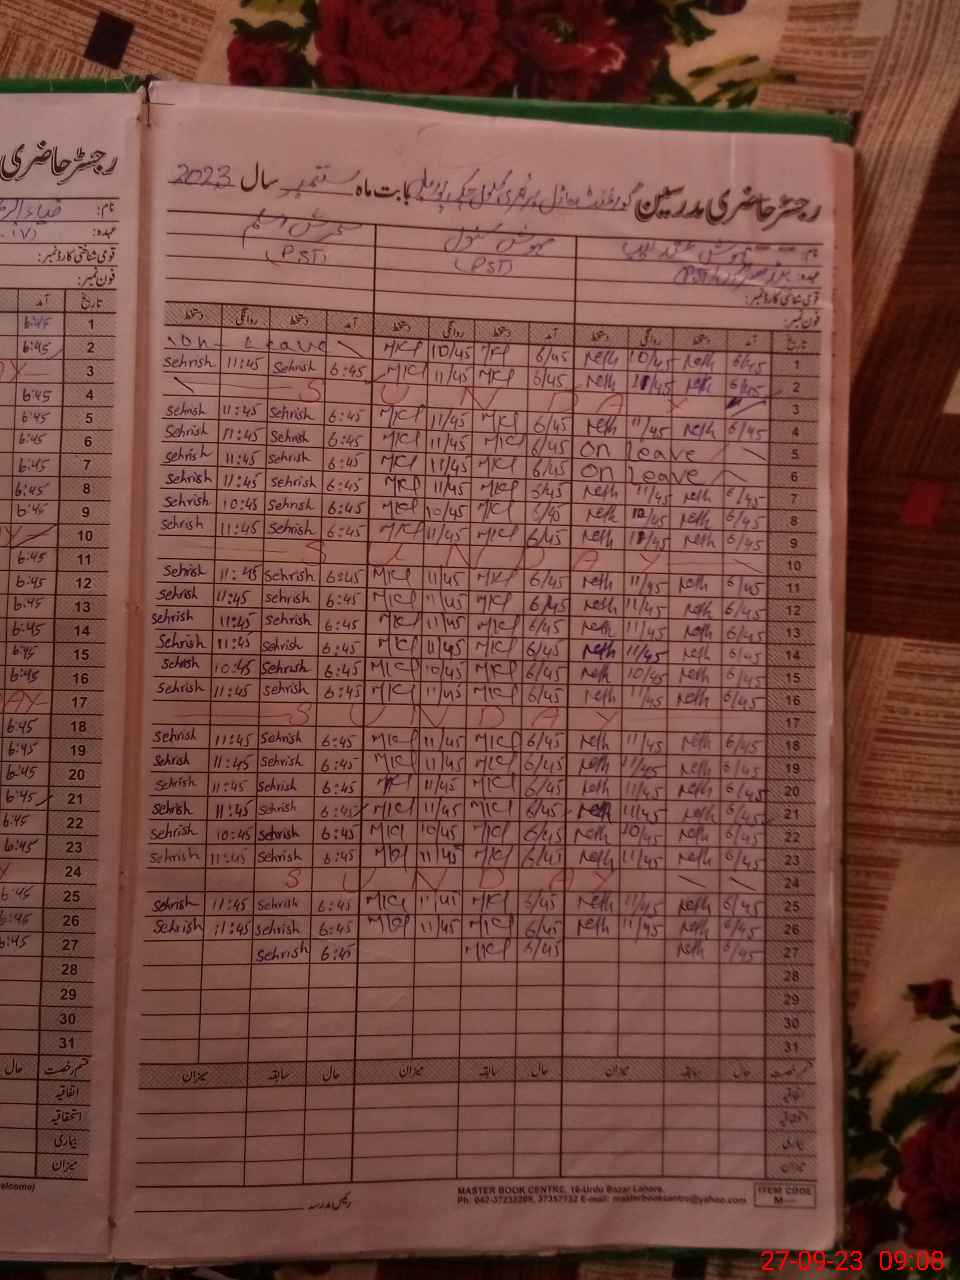 رجسٹر حاضری مدرسین گورنمنٹ ماڈل پرائمری سکول بابت ماہ ستمبر سال 2023
نام:
عہدہ: (PST) (PST) (PST)
قومی شناختی کارڈ نمبر:
فون نمبر:
تاریخ آمد دستخط روانگی دستخط آمد دستخط روانگی دستخط آمد دستخط روانگی دستخط
1 6/45 neth 10/45 neth 6/45 MKl 10/45 MKl on Leave
2 6/45 neth 11/45 neth 6/45 MKl 11/45 MKl 6:45 Sehrish 11:45 Sehrish
3 SUNDAY
4 6/45 neth 11/45 neth 6/45 MKl 11/45 MKl 6:45 Sehrish 11:45 Sehrish
5 on Leave 6/45 MKl 11/45 MKl 6:45 Sehrish 11:45 Sehrish
6 on Leave 6/45 MKl 11/45 MKl 6:45 Sehrish 11:45 Sehrish
7 6/45 neth 11/45 neth 6/45 MKl 11/45 MKl 6:45 Sehrish 11:45 Sehrish
8 6/45 neth 10/45 neth 6/45 MKl 10/45 MKl 6:45 Sehrish 10:45 Sehrish
9 6/45 neth 11/45 neth 6/45 MKl 11/45 MKl 6:45 Sehrish 11:45 Sehrish
10 SUNDAY
11 6/45 neth 11/45 neth 6/45 MKl 11/45 MKl 6:45 Sehrish 11:45 Sehrish
12 6/45 neth 11/45 neth 6/45 MKl 11/45 MKl 6:45 Sehrish 11:45 Sehrish
13 6/45 neth 11/45 neth 6/45 MKl 11/45 MKl 6:45 Sehrish 11:45 Sehrish
14 6/45 neth 11/45 neth 6/45 MKl 11/45 MKl 6:45 Sehrish 11:45 Sehrish
15 6/45 neth 10/45 neth 6/45 MKl 10/45 MKl 6:45 Sehrish 10:45 Sehrish
16 6/45 neth 11/45 neth 6/45 MKl 11/45 MKl 6:45 Sehrish 11:45 Sehrish
17 SUNDAY
18 6/45 neth 11/45 neth 6/45 MKl 11/45 MKl 6:45 Sehrish 11:45 Sehrish
19 6/45 neth 11/45 neth 6/45 MKl 11/45 MKl 6:45 Sehrish 11:45 Sehrish
20 6/45 neth 11/45 neth 6/45 MKl 11/45 MKl 6:45 Sehrish 11:45 Sehrish
21 6/45 neth 11/45 neth 6/45 MKl 11/45 MKl 6:45 Sehrish 11:45 Sehrish
22 6/45 neth 10/45 neth 6/45 MKl 10/45 MKl 6:45 Sehrish 10:45 Sehrish
23 6/45 neth 11/45 neth 6/45 MKl 11/45 MKl 6:45 Sehrish 11:45 Sehrish
24 SUNDAY
25 6/45 neth 11/45 neth 6/45 MKl 11/45 MKl 6:45 Sehrish 11:45 Sehrish
26 6/45 neth 11/45 neth 6/45 MKl 11/45 MKl 6:45 Sehrish 11:45 Sehrish
27 6/45 neth 6/45 MKl 6:45 Sehrish
28
29
30
31
قسم رخصت حال سابقہ میزان حال سابقہ میزان حال سابقہ میزان
اتفاقیہ
استحقاقیہ
بیماری
میزان
رئیس مدرسہ
MASTER BOOK CENTRE, 18-Urdu Bazar Lahore.
Ph: 042-37232209, 37357732 E-mail: masterbookcentre@yahoo.com
ITEM CODE
M—
رجسٹر حاضری
نام:
عہدہ:
قومی شناختی کارڈ نمبر:
فون نمبر:
تاریخ آمد
1 6:45
2 6:45
3
4 6:45
5 6:45
6 6:45
7 6:45
8 6:45
9 6:45
10
11 6:45
12 6:45
13 6:45
14 6:45
15 6:45
16 6:45
17 AY
18 6:45
19 6:45
20 6:45
21 6:45
22 6:45
23 6:45
24
25 6:45
26 6:45
27 6:45
28
29
30
31
قسم رخصت حال
اتفاقیہ
استحقاقیہ
بیماری
میزان
27-09-23 09:08